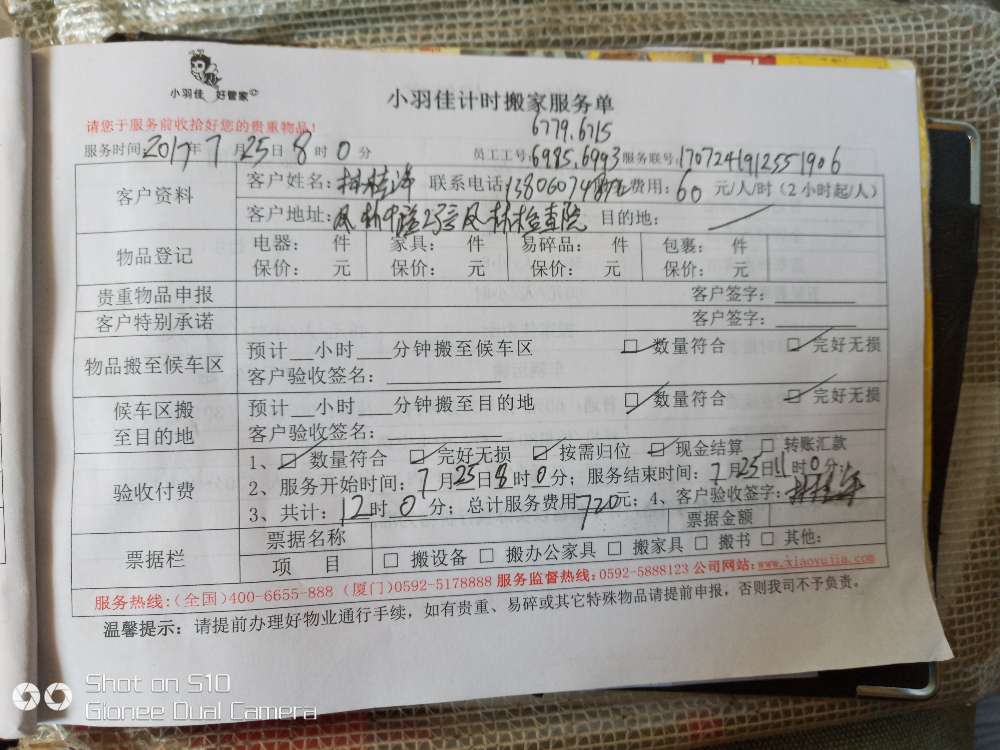 小羽佳 好管家
小羽佳计时搬家服务单
请您于服务前收拾好您的贵重物品!
6779.6715
服务时间:2017年7月25日8时0分 员工工号:6985.6993 服务联号:1707241912551906
客户资料 客户姓名: 联系电话: 费用:60元/人/时(2小时起/人)
客户地址: 目的地:
物品登记 电器: 件 家具: 件 易碎品: 件 包裹: 件
保价: 元 保价: 元 保价: 元 保价: 元
贵重物品申报 客户签字:
客户特别承诺 客户签字:
物品搬至候车区 预计__小时___分钟搬至候车区 数量符合 完好无损
客户验收签名:
候车区搬至目的地 预计__小时___分钟搬至目的地 数量符合 完好无损
客户验收签名:
验收付费 1、数量符合 完好无损 按需归位 现金结算 转账汇款
2、服务开始时间:7月25日8时0分;服务结束时间:7月25日11时0分;
3、共计:12时0分;总计服务费用720元;4、客户验收签字:
票据栏 票据名称 票据金额
项 目 搬设备 搬办公家具 搬家具 搬书 其他:
服务热线:(全国)400-6655-888 (厦门)0592-5178888 服务监督热线:0592-5888123 公司网站:www.xiaoyujia.com
温馨提示:请提前办理好物业通行手续,如有贵重、易碎或其它特殊物品请提前申报,否则我司不予负责。
Shot on S10
Gionee Dual Camera